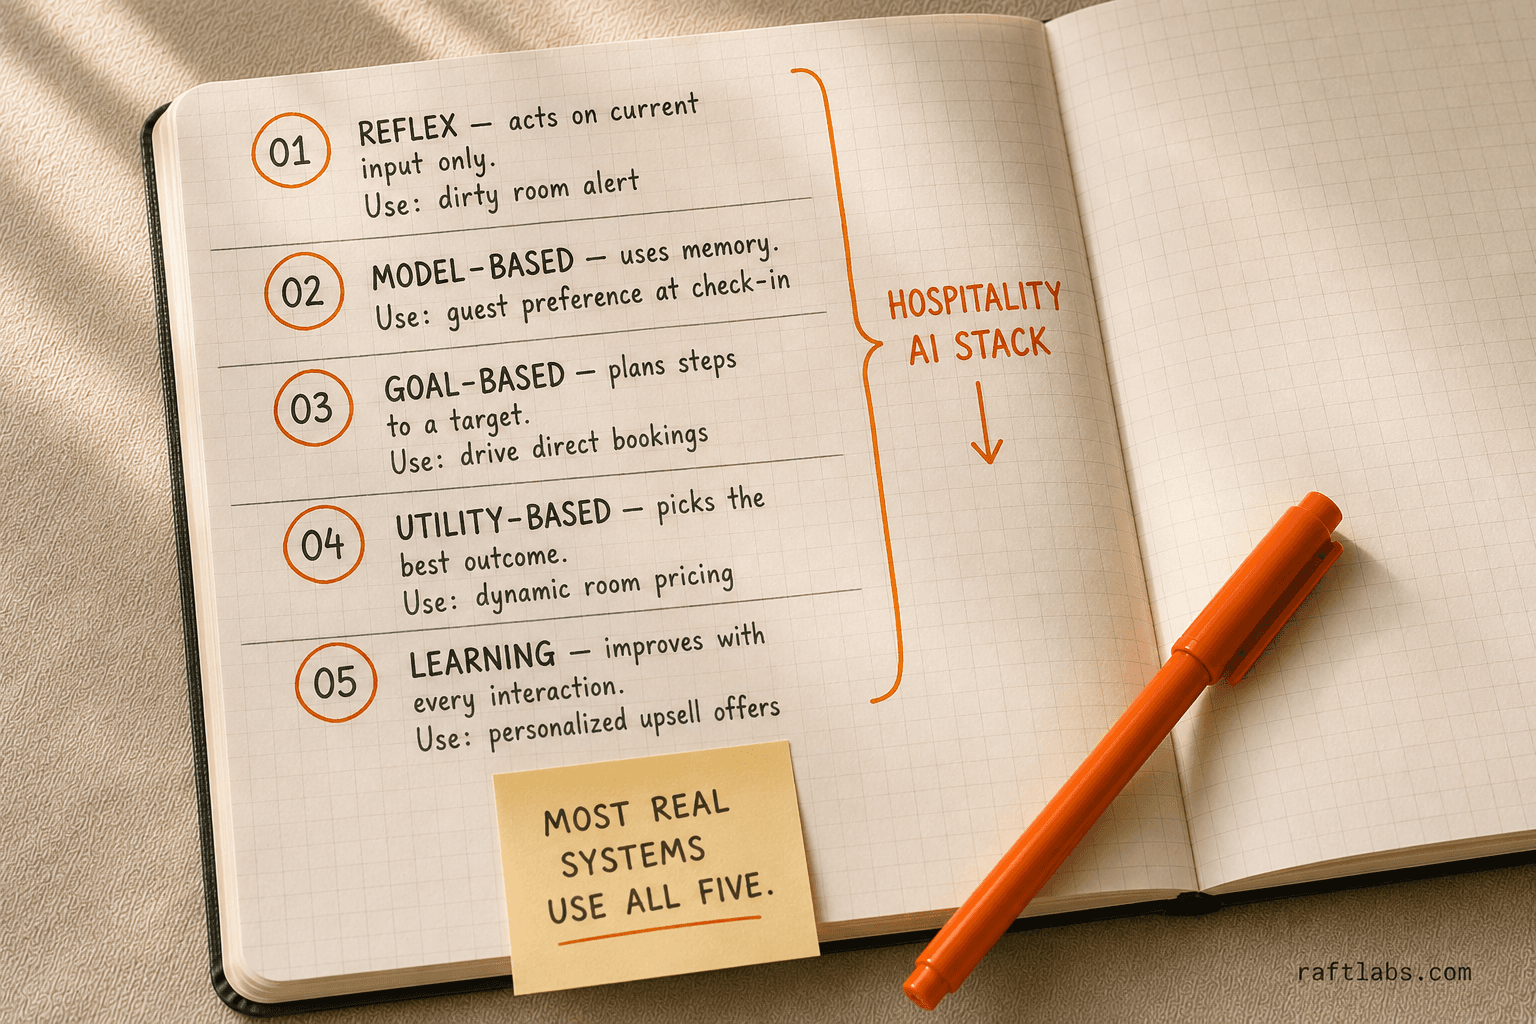 01
REFLEX — acts on current
input only.
Use: dirty room alert
02
MODEL-BASED — uses memory.
Use: guest preference at check-in
03
GOAL-BASED — plans steps
to a target.
Use: drive direct bookings
04
UTILITY-BASED — picks the
best outcome.
Use: dynamic room pricing
05
LEARNING — improves with
every interaction.
Use: personalized upsell offers
HOSPITALITY
AI STACK
MOST REAL
SYSTEMS
USE ALL FIVE.
raftlabs.com